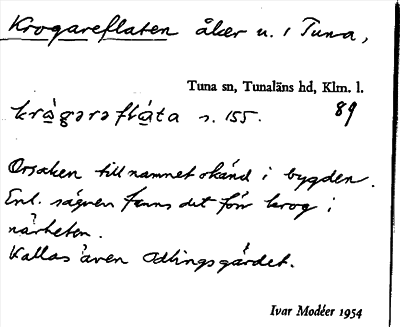 Krogareflaten åker u. 1 Tuna,
Tuna sn, Tunaläns hd, Klm. l.
89
kràgarəflàta s. 155.
Orsaken till namnet okänd i bygden.
Enl. sägnen fanns det förr krog i
närheten.
Kallas även Odlingsgärdet.
Ivar Modéer 1954